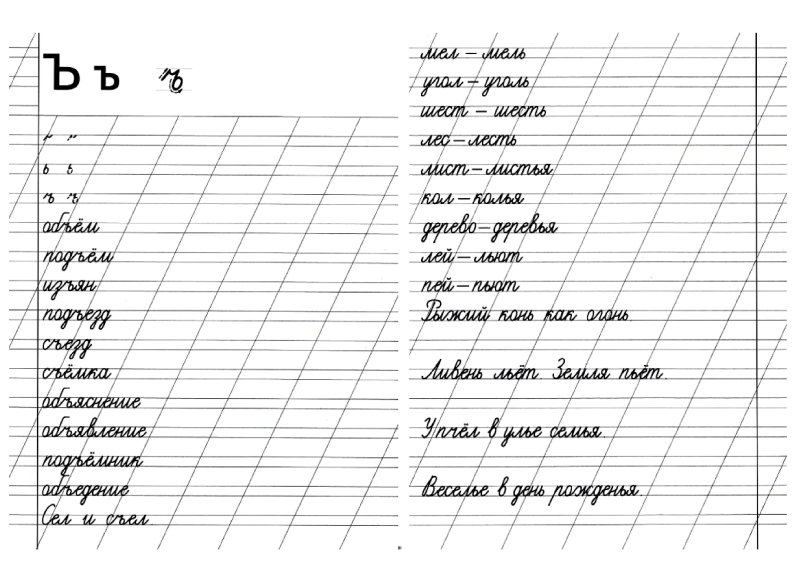 Ъ ъ ъ
ь ь
ъ ъ
объём
подъём
изъян
подъезд
съезд
съёмка
объяснение
объявление
подъёмник
объедение
Сел и съел.
мел – мель
угол – уголь
шест – шесть
лес – лесть
лист – листья
кол – колья
дерево – деревья
лей – льют
пей – пьют
Рыжий конь как огонь.
Ливень льёт. Земля пьёт.
У пчёл в улье семья.
Веселье в день рожденья.